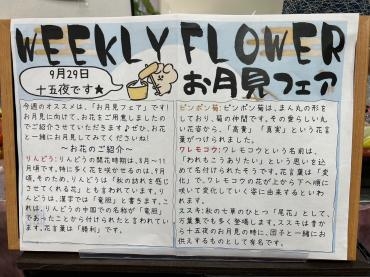 WEEKLY FLOWER
9月29日
十五夜です★
お月見フェア
今週のオススメは、「お月見フェア」です!
お月見に向けて、お花をご用意しましたの
でご紹介させていただきます♪ぜひ、お花
と一緒にお月見してみてくださいね!
～お花のご紹介～
りんどう：りんどうの開花時期は、8月～11
月頃です。特に多く花を咲かせるのは、9月
頃。そのため、りんどうは「秋の訪れを感じ
させてくれる花」とも言われています。り
んどうは、漢字では「竜胆」と書きます。こ
れは、りんどうの中国での名称が「竜胆」
であったことから付けられたと言われてい
ます。花言葉は「勝利」です。
ピンポン菊：ピンポン菊は、まん丸の形を
しており、菊の仲間です。その愛らしい丸
い花姿から、「高貴」「真実」という花言
葉がつけられました。
ワレモコウ：ワレモコウという名前は、
「われもこうありたい」という思いを込
めて名付けられたそうです。花言葉は「変
化」で、ワレモコウの花が上から下へ順に
咲いて変化していく姿に由来するといわ
れます。
ススキ：秋の七草のひとつ「尾花」として、
万葉集でも多く登場します。ススキは昔か
ら十五夜のお月見の時に、団子と一緒にお
供えするものとして有名です。